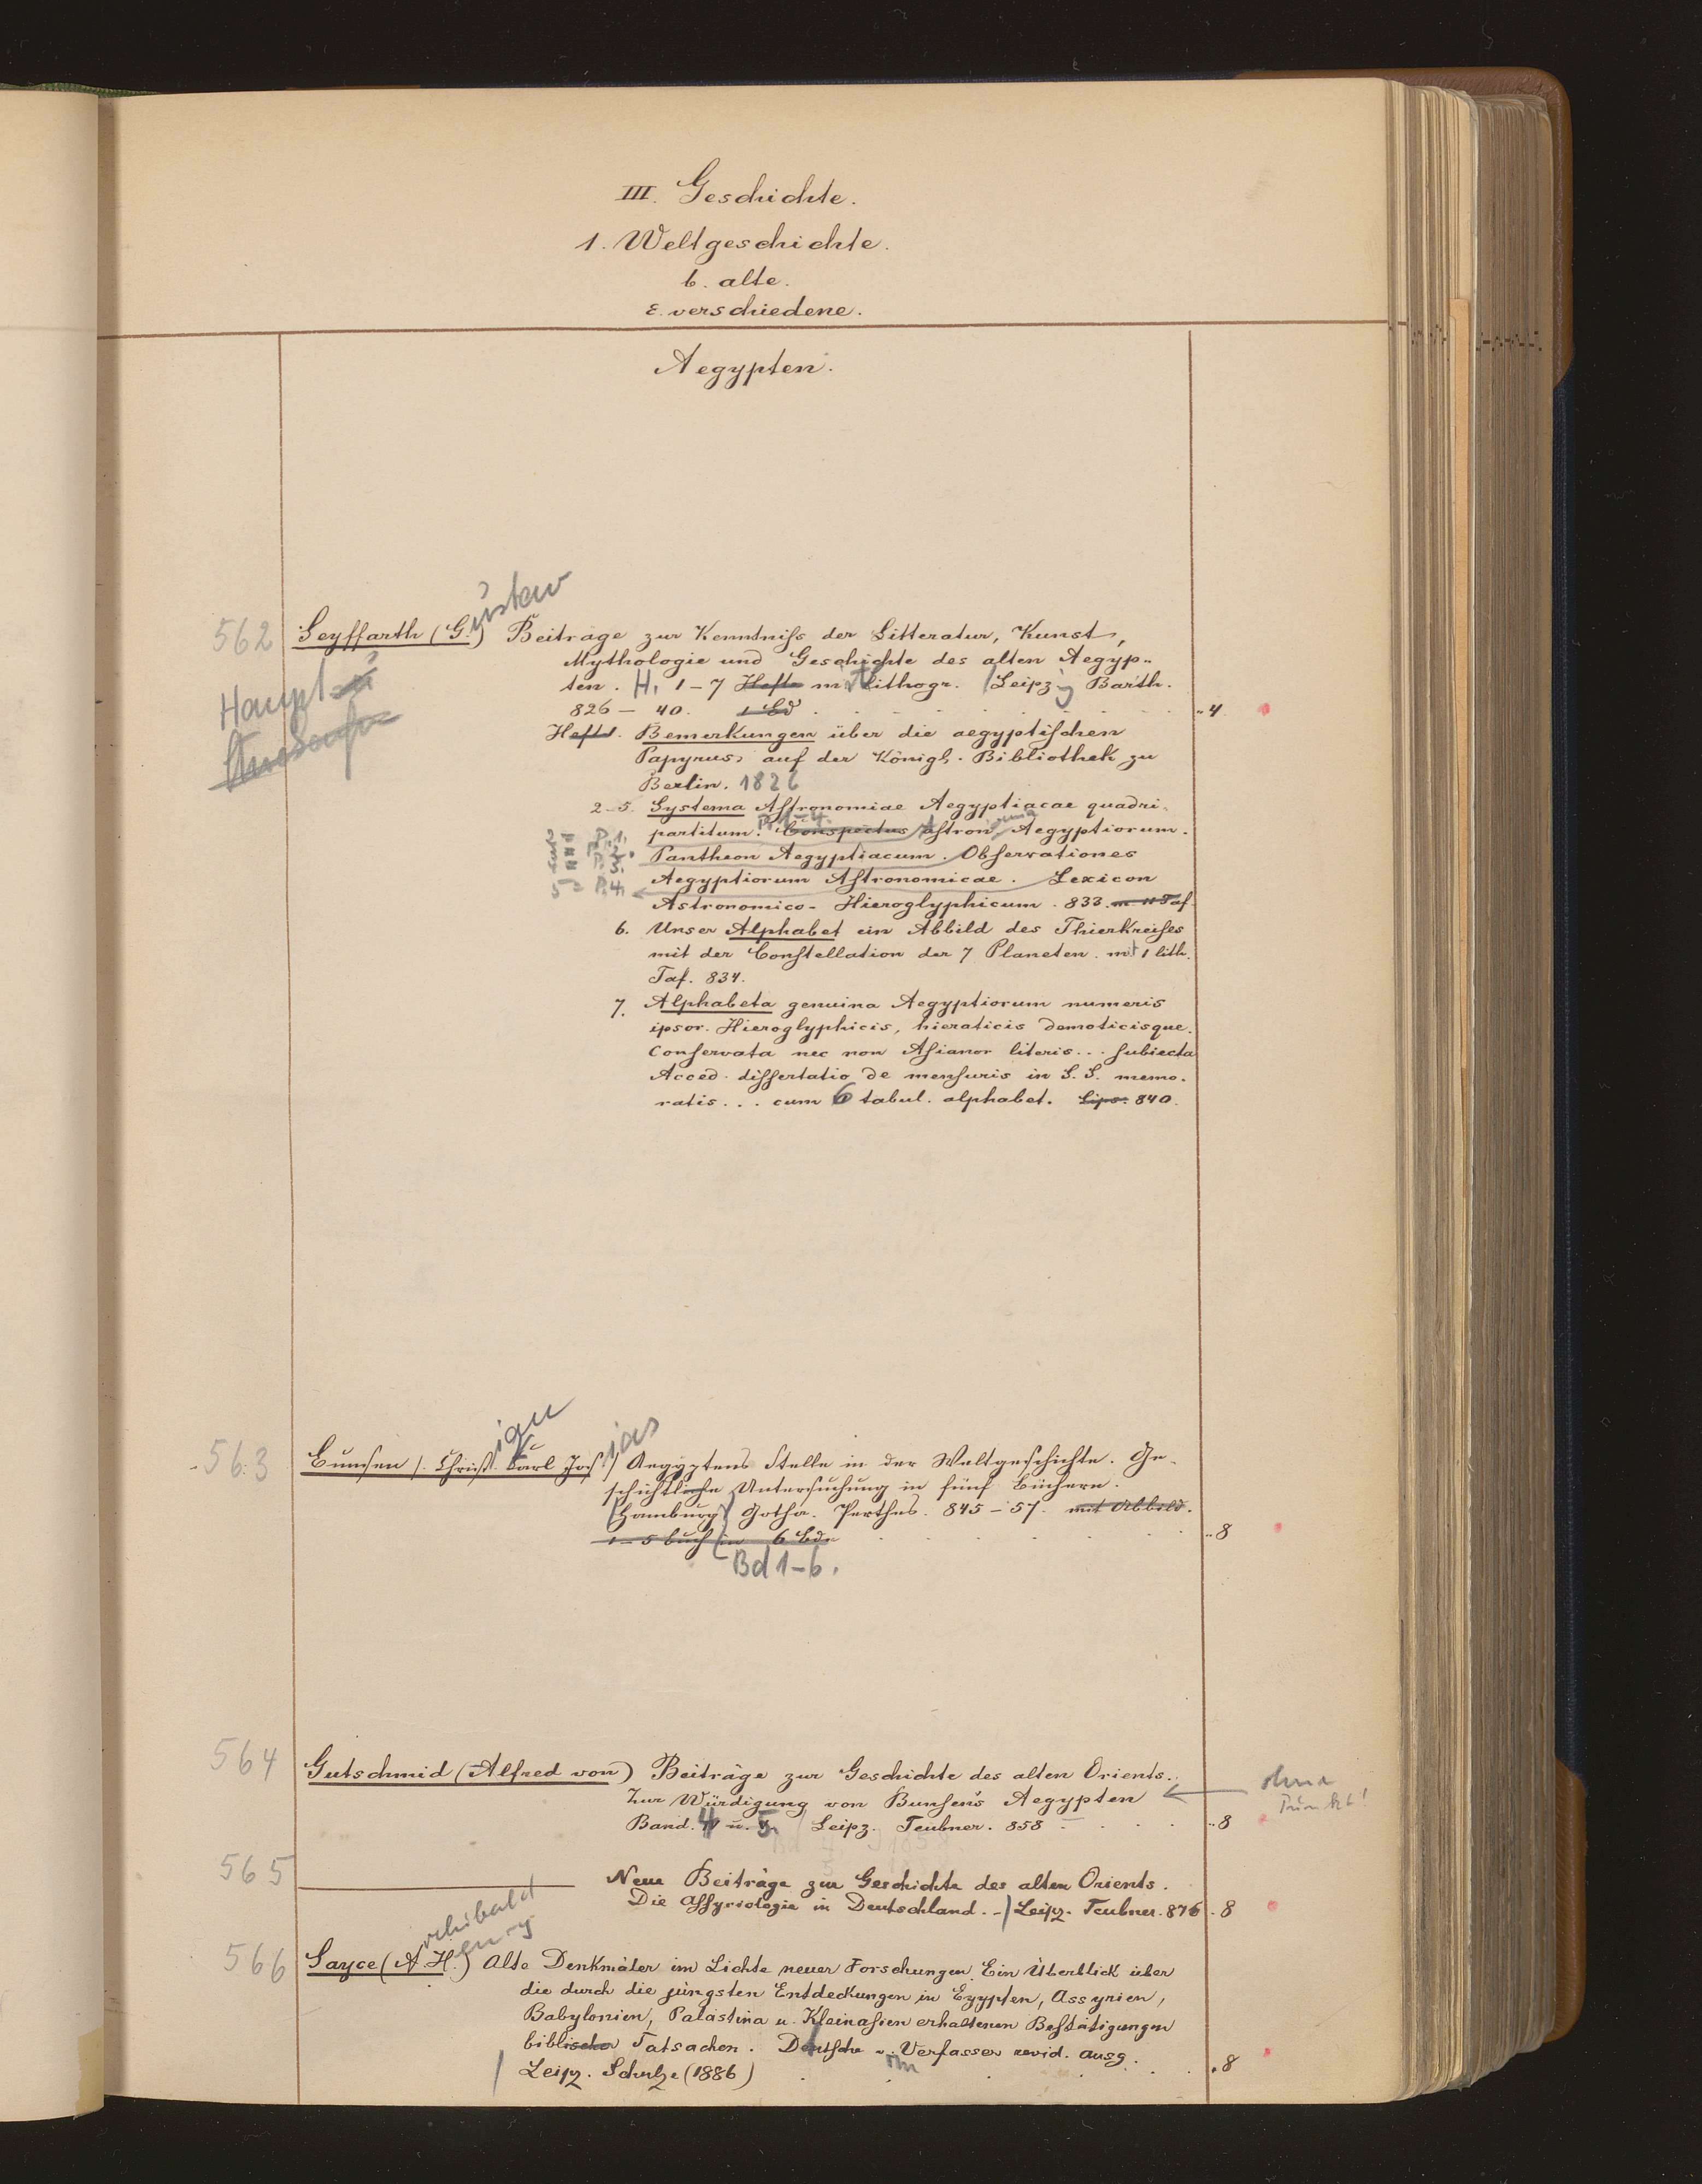 III. Geschichte.
1. Weltgeschichte.
b. alte.
ε. verschiedene.
Aegypten.
562 Seyffarth (G.) ustav Beiträge zur Kenntniſs der Litteratur, Kunst,
Haupt- u
Mythologie und Geschichte des alten Aegyp-
ten. H. 1-7 Hefte mit Lithogr. / Leipzig Barth.
826 - 40. 1 Bd . . . . 4
Heft 1. Bemerkungen über die aegyptiſchen
Papyrus, auf der Königl. Bibliothek zu
Berlin. 1826
2-5. Systema Aſtronomiae Aegyptiacae quadri-
partitum. P. 1-4. Conspectus Aſtronomiae Aegyptiorum.
2 = P. 1.
Pantheon Aegyptiacum. Obſervationes
Aegyptiorum Aſtronomicae. Lexicon
5 = P. 4.
Astronomico-Hieroglyphicum. 833. m 11 Taf.
6. Unser Alphabet ein Abbild des Thierkreiſes
mit der Conſtellation der 7 Planeten. mit 1 lith.
Taf. 834.
7. Alphabeta genuina Aegyptiorum numeris
ipsor. Hieroglyphicis, hieraticis demoticisque.
Conſervata nec non Aſianor literis... ſubiecta
Acced. diſſertatio de menſuris in S. S. memo-
ratis... cum 6 tabul. alphabet. Lips. 840.
563 Bunsen (Christ. ian Karl Jos.) ias Aegyptens Stelle in der Weltgeschichte. Ge-
schichtliche Untersuchung in fünf Büchern.
(Hamburg) Gotha. Perthes. 845-57. mit Abbild.
1-5 Buch (in 6 Bdn . . . . 8
Bd 1-6.
564 Gutschmid (Alfred von) Beiträge zur Geschichte des alten Orients.
Zur Würdigung von Bunſen's Aegypten
ohne
Punkt!
Band. 4 u. 5. / Leipz. Teubner. 858 . . . . 8
565 ——— Neue Beiträge zur Geschichte des alten Orients.
Die Aſſyriologie in Deutschland. -/ Leipz. Teubner. 876 . 8
566 Sayce (A. H.) rchibald enry Alte Denkmäler im Lichte neuer Forschungen. Ein Überblick über
die durch die jüngsten Entdeckungen in Egypten, Assyrien,
Babylonien, Palästina u. Kleinaſien erhaltenen Beſtätigungen
biblischer Tatsachen. Deutsche v. om Verfasser revid. Ausg.
/ Leipz. Schulze (1886) . . . . 8